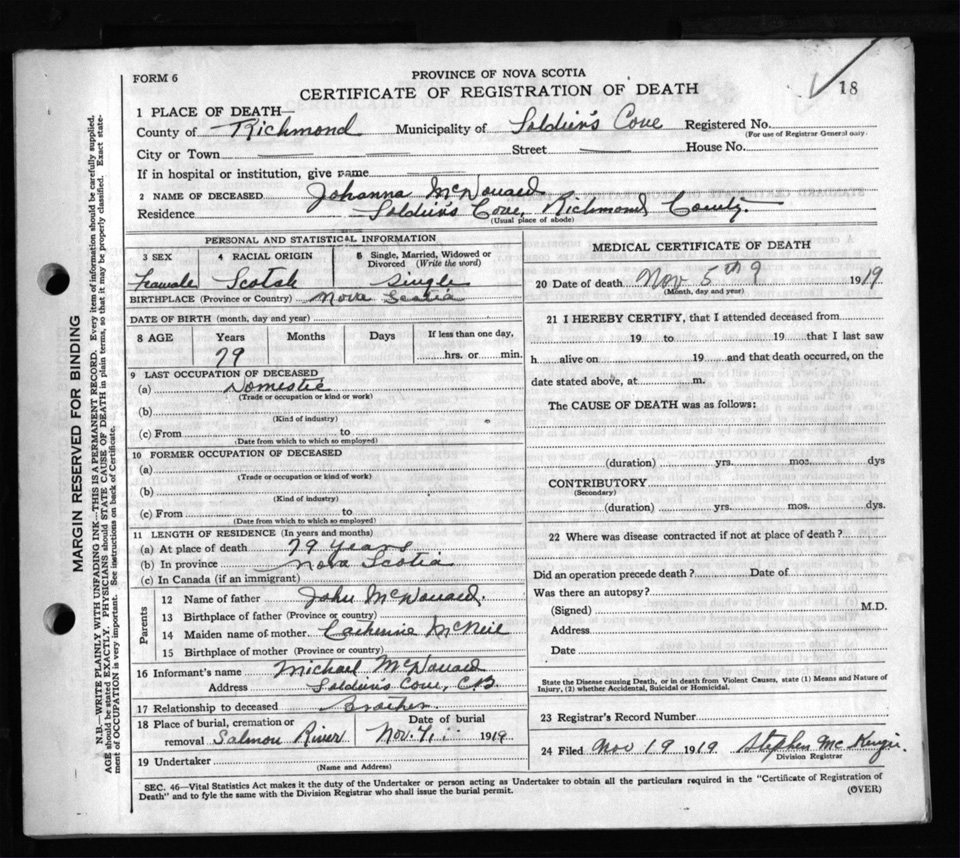 FORM 6
PROVINCE OF NOVA SCOTIA
CERTIFICATE OF REGISTRATION OF DEATH
18
1 PLACE OF DEATH—
County of Richmond Municipality of Soldier's Cove Registered No.
(For use of Registrar General only.
City or Town Street House No.
If in hospital or institution, give name
2 NAME OF DECEASED Johanna McDonald
Residence Soldier's Cove, Richmond County.
(Usual place of abode)
PERSONAL AND STATISTICAL INFORMATION
3 SEX 4 RACIAL ORIGIN 5 Single, Married, Widowed or Divorced (Write the word)
Female Scotch Single
BIRTHPLACE (Province or Country) Nova Scotia
DATE OF BIRTH (month, day and year)
8 AGE Years Months Days If less than one day,
79 hrs. or min.
9 LAST OCCUPATION OF DECEASED
(a) Domestic
(Trade or occupation or kind or work)
(b)
(Kind of industry)
(c) From to
(Date from which to which so employed)
10 FORMER OCCUPATION OF DECEASED
(a)
(Trade or occupation or kind of work)
(b)
(Kind of industry)
(c) From to
(Date from which to which so employed)
11 LENGTH OF RESIDENCE (In years and months)
(a) At place of death 79 years
(b) In province Nova Scotia
(c) In Canada (if an immigrant)
Parents
12 Name of father John McDonald.
13 Birthplace of father (Province or country)
14 Maiden name of mother Catherine McNeil
15 Birthplace of mother (Province or country)
16 Informant's name Michael McDonald
Address Soldier's Cove, C.B.
17 Relationship to deceased Brother
18 Place of burial, cremation or Date of burial
removal Salmon River Nov. 7, 1919
19 Undertaker
(Name and Address)
MEDICAL CERTIFICATE OF DEATH
20 Date of death Nov 5th 1919
(Month, day and year)
21 I HEREBY CERTIFY, that I attended deceased from
19 to 19 that I last saw
h alive on 19 and that death occurred, on the
date stated above, at m.
The CAUSE OF DEATH was as follows:
(duration) yrs. mos. dys
CONTRIBUTORY
(Secondary)
(duration) yrs. mos. dys.
22 Where was disease contracted if not at place of death?
Did an operation precede death? Date of
Was there an autopsy?
(Signed) M.D.
Address
Date
State the Disease causing Death, or in death from Violent Causes, state (1) Means and Nature of
Injury, (2) whether Accidental, Suicidal or Homicidal.
23 Registrar's Record Number
24 Filed Nov 19 1919 Stephen McKenzie.
Division Registrar
SEC. 46—Vital Statistics Act makes it the duty of the Undertaker or person acting as Undertaker to obtain all the particulars required in the "Certificate of Registration of
Death" and to fyle the same with the Division Registrar who shall issue the burial permit. (OVER)
MARGIN RESERVED FOR BINDING
N.B.—WRITE PLAINLY WITH UNFADING INK—THIS IS A PERMANENT RECORD. Every item of information should be carefully supplied.
AGE should be stated EXACTLY. PHYSICIANS should STATE CAUSE OF DEATH in plain terms, so that it may be properly classified. Exact state-
ment of OCCUPATION is very important. See instructions on back of Certificate.